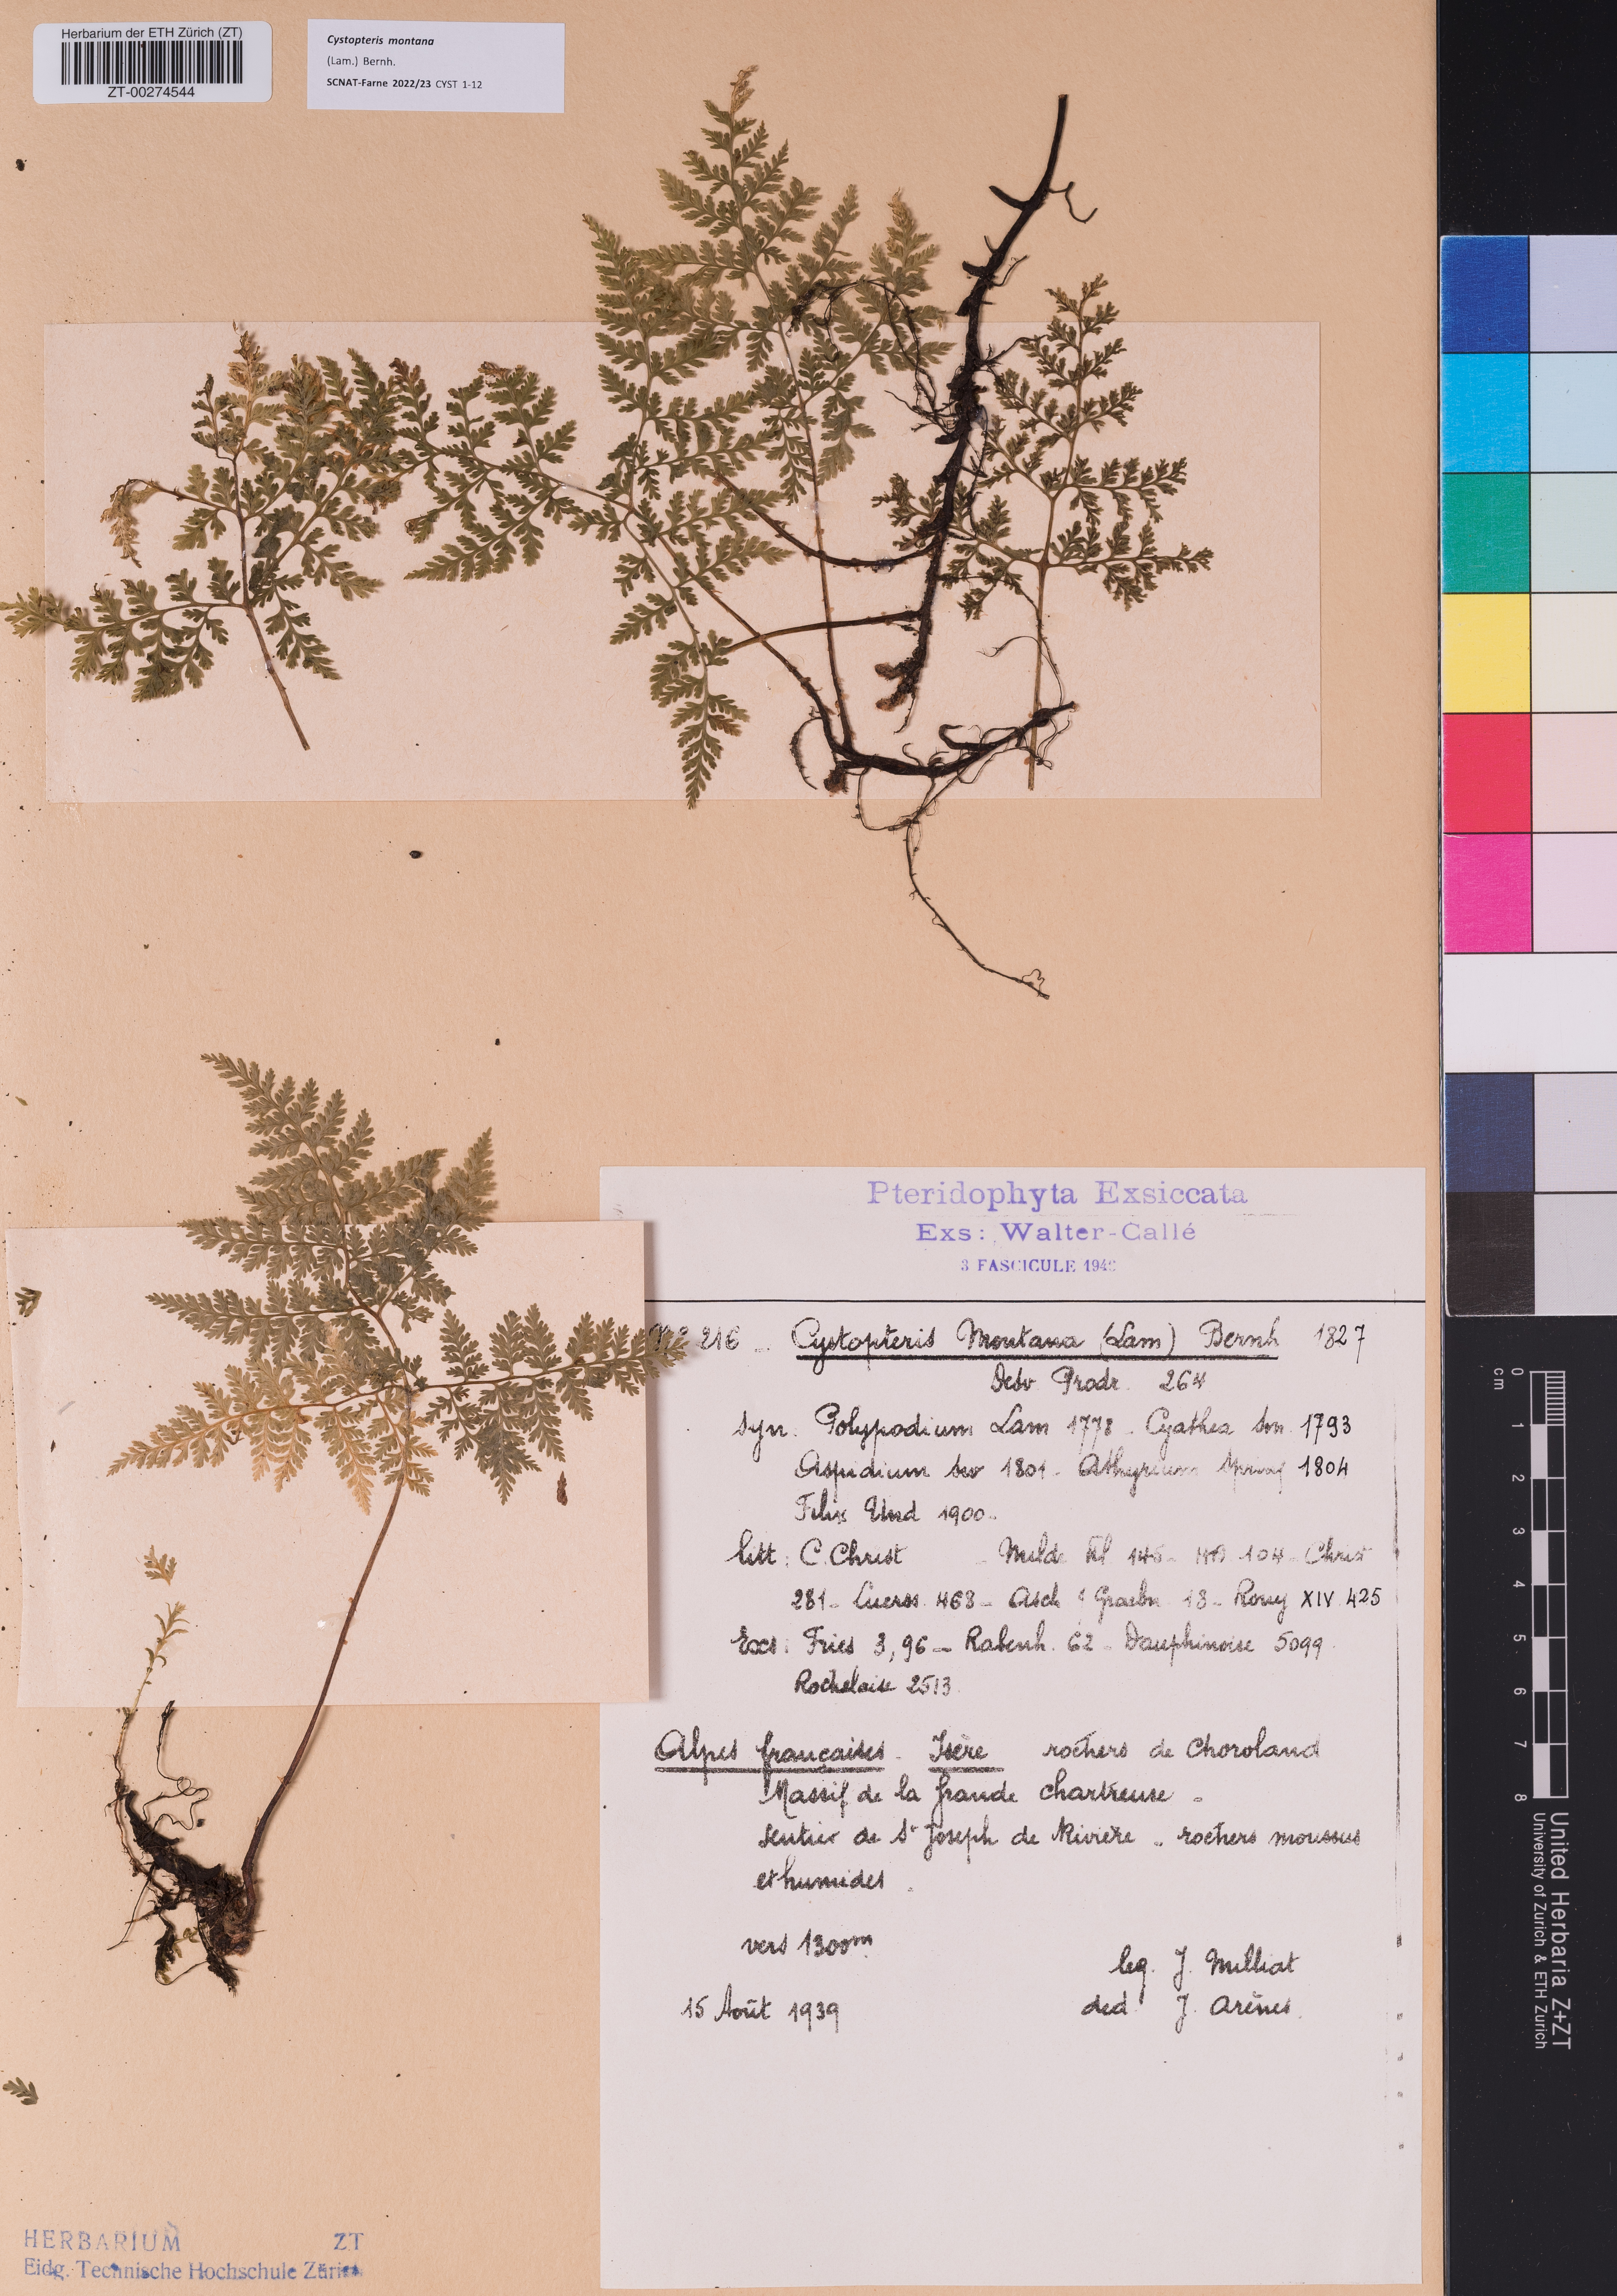 Herbarium der ETH Zürich (ZT)
ZT-00274544
Cystopteris montana
(Lam.) Bernh.
SCNAT-Farne 2022/23 CYST 1-12
Pteridophyta Exsiccata
Exs: Walter-Callé
3 FASCICULE 194
216 _ Cystopteris Montana (Lam) Bernh 1827
Desv Prodr. 264
syn. Polypodium Lam 1778 - Cyathea Sm 1793
Aspidium Sw 1801 - Athyrium Spreng 1804
Filix Und 1900 -
litt: C. Christ - Milde Fil 146 - HB 104 - Christ
281 - Luerss 468 - Asch & Graebn 18 - Rouy XIV 425
Exs: Fries 3, 96 - Rabenh. 62 - Dauphinoise 5099
Rochelaise 2513
Alpes françaises - Isère rochers de Choroland
Massif de la Grande Chartreuse -
sentier de St Joseph de Rivière - rochers moussus
et humides
vers 1300m
leg. J. Milliat
15 Août 1939
ded J. Arènes
HERBARIUM ZT
Eidg. Technische Hochschule Zürich
0 1 2 3 4 5 6 7 8
cm
United Herbaria Z+ZT
University of Zurich & ETH Zurich